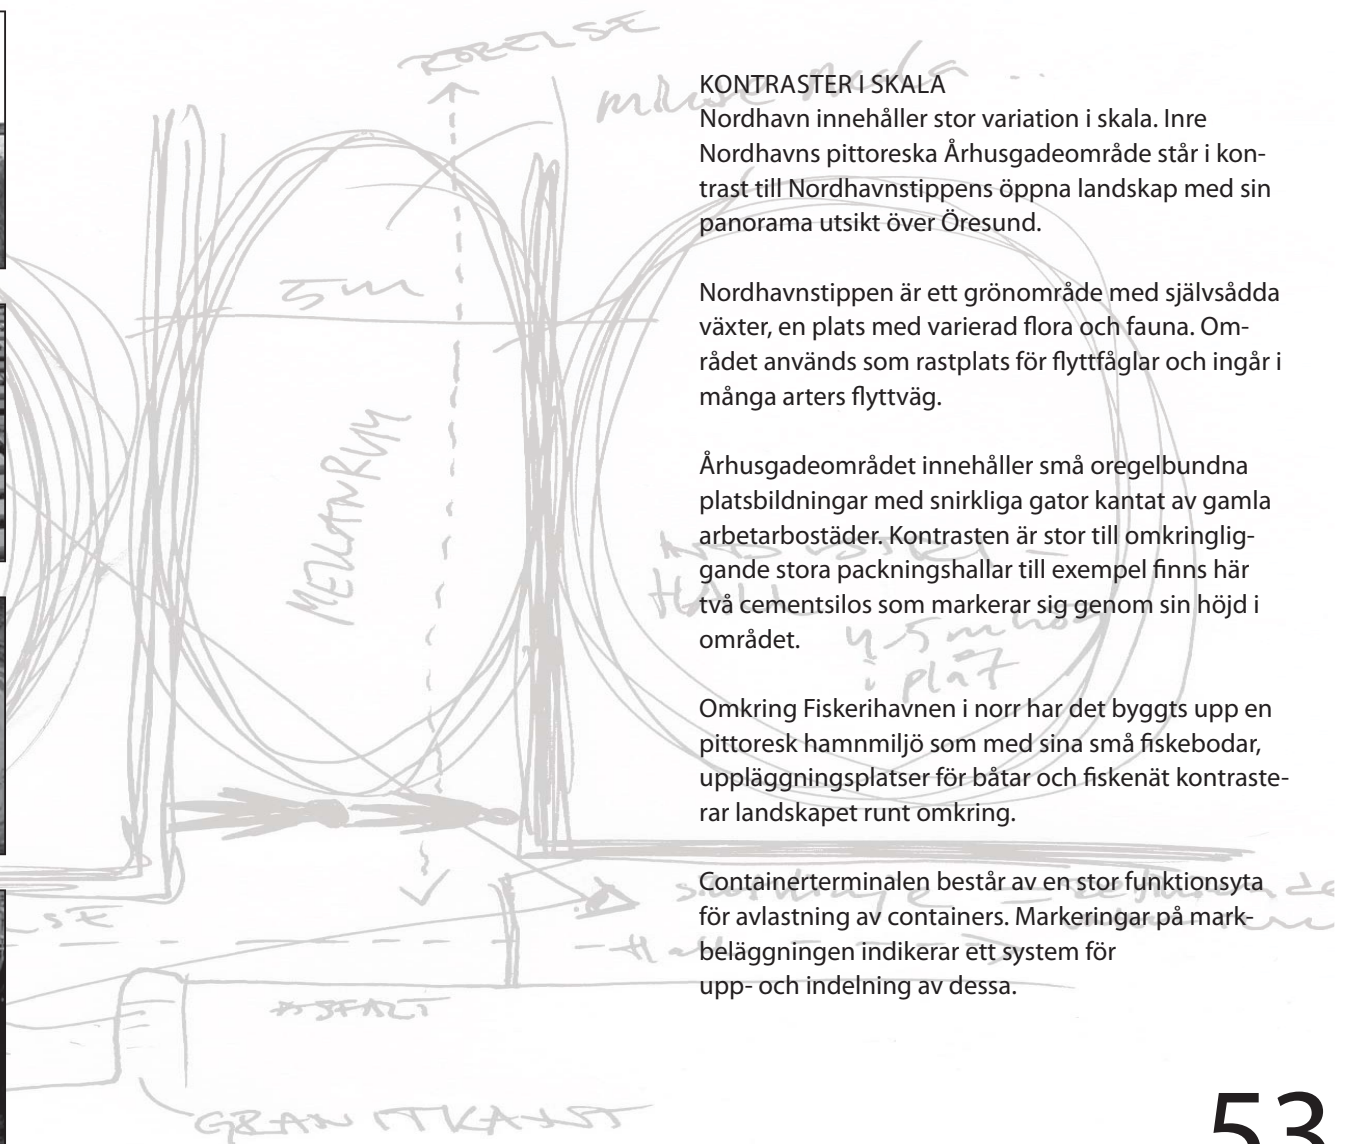 RÖRELSE
5 m
MELLANRUM
HALL
4-5 m
i plåt
ASFALT
GRANITKANT
KONTRASTER I SKALA
Nordhavn innehåller stor variation i skala. Inre
Nordhavns pittoreska Århusgadeområde står i kon-
trast till Nordhavnstippens öppna landskap med sin
panorama utsikt över Öresund.
Nordhavnstippen är ett grönområde med självsådda
växter, en plats med varierad flora och fauna. Om-
rådet används som rastplats för flyttfåglar och ingår i
många arters flyttväg.
Århusgadeområdet innehåller små oregelbundna
platsbildningar med snirkliga gator kantat av gamla
arbetarbostäder. Kontrasten är stor till omkringlig-
gande stora packningshallar till exempel finns här
två cementsilos som markerar sig genom sin höjd i
området.
Omkring Fiskerihavnen i norr har det byggts upp en
pittoresk hamnmiljö som med sina små fiskebodar,
uppläggningsplatser för båtar och fiskenät kontraste-
rar landskapet runt omkring.
Containerterminalen består av en stor funktionsyta
för avlastning av containers. Markeringar på mark-
beläggningen indikerar ett system för
upp- och indelning av dessa.
53